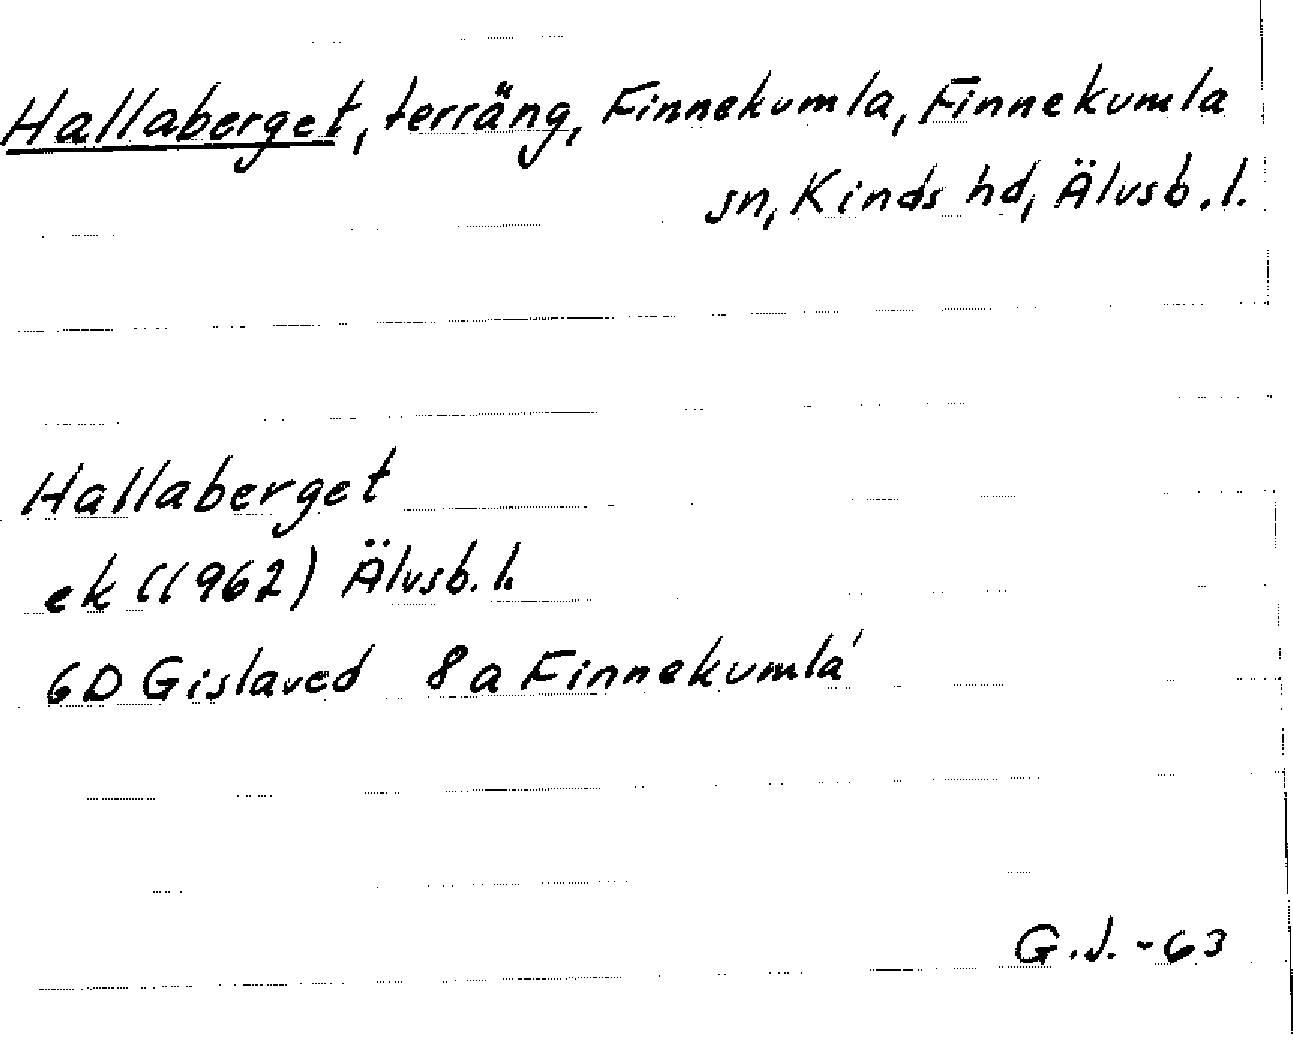 Hallaberget, terräng, Finnekumla, Finnekumla
sn, Kinds hd, Älvsb. l.
Hallaberget
ek (1962) Älvsb. l.
6D Gislaved 8a Finnekumla
G.J. -63